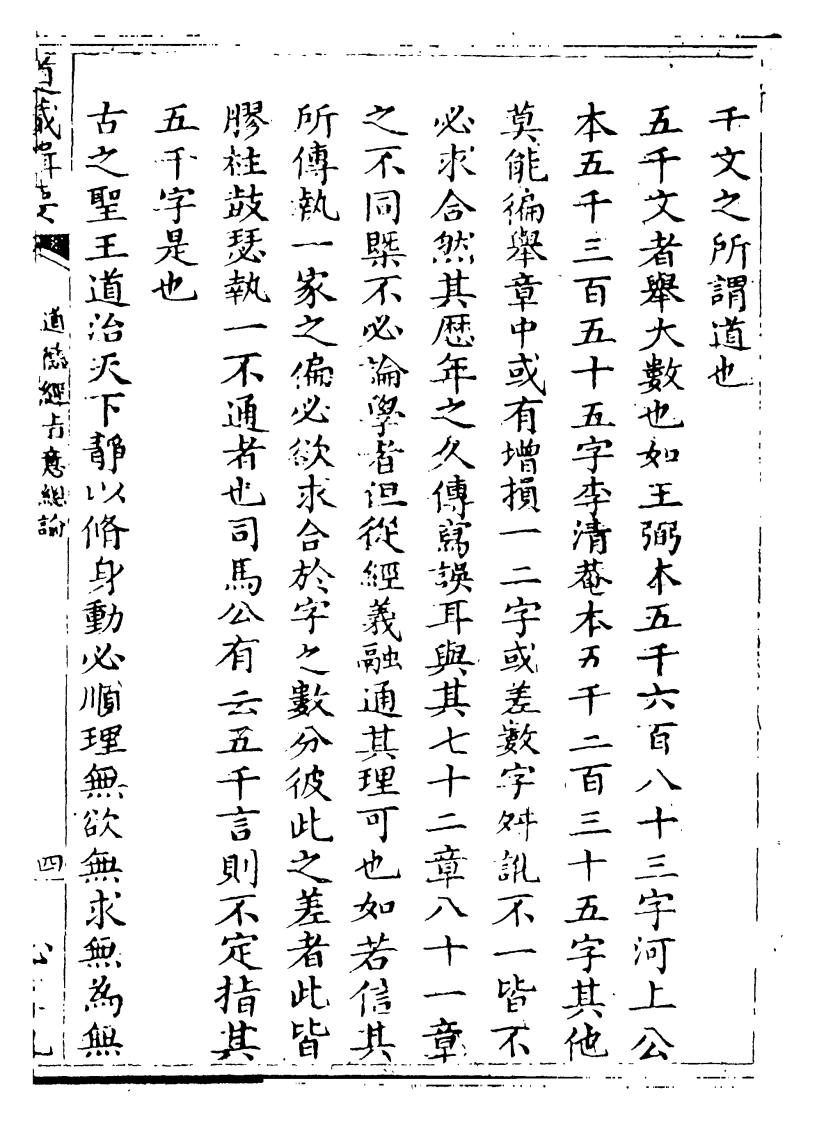 千文之所謂道也
五千文者舉大數也如王弼本五千六百八十三字河上公
本五千三百五十五字李清菴本五千二百三十五字其他
莫能徧舉章中或有增損一二字或差數字舛訛不一皆不
必求合然其歷年之久傳寫誤耳與其七十二章八十一章
之不同槩不必論學者但從經義融通其理可也如若信其
所傳執一家之偏必欲求合於字之數分彼此之差者此皆
膠柱鼓瑟執一不通者也司馬公有云五千言則不定指其
五千字是也
古之聖王道治天下靜以脩身動必順理無欲無求無為無
道藏輯要
道德經旨意總論
四